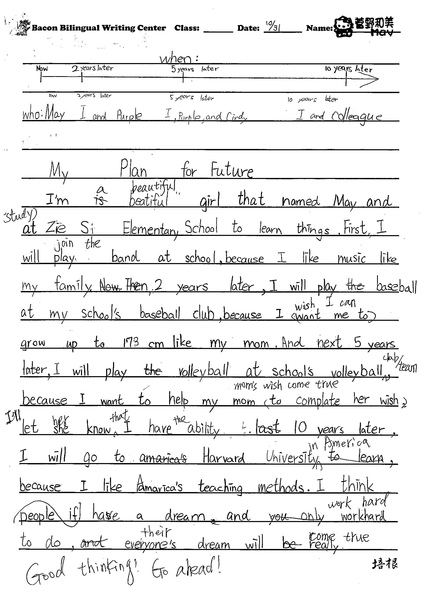 Bacon Bilingual Writing Center Class: Date: 10/31 Name: 菅野和美
May
when:
Now 2 years later 5 years later 10 years later
now 2 years later 5 years later 10 years later
who: May I and Purple I, Purple, and Cindy I and colleague
My Plan for Future
a beautiful
I'm is beatiful girl that named May and
study
at Zie Si Elementary School to learn things. First, I
join the
will play band at school, because I like music like
my family. Now Then, 2 years later, I will play the baseball
wish, I can
at my school's baseball club, because I want me to
grow up to 173 cm like my mom. And next 5 years
club/team
later, I will play the volleyball at school's volleyball,
mom's wish come true
because I want to help my mom to complate her wish,
I'll her that the
let she know I have ability. last 10 years later,
in America
I will go to amarica's Harvard University to learn,
because I like Amarica's teaching methods. I think
work hard
people if have a dream, and you only workhard
their come true
to do, and everyone's dream will be really.
Good thinking! Go ahead! 培根